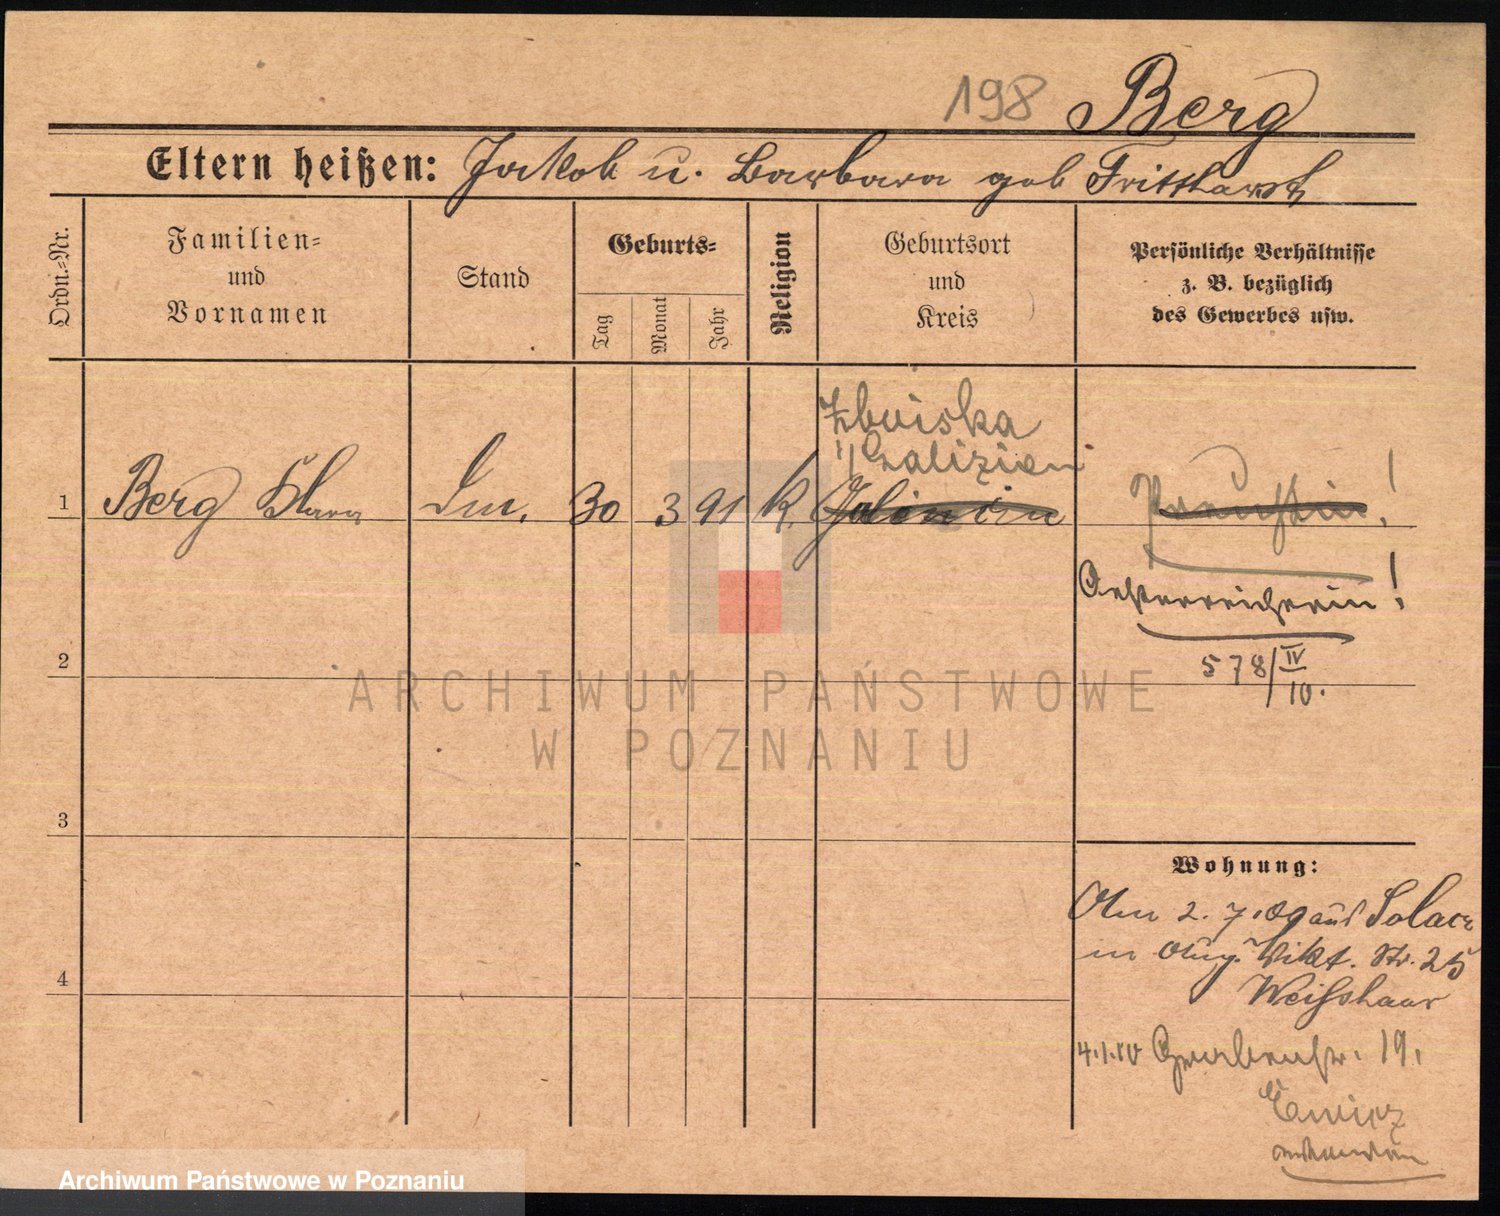 198 Berg
Eltern heißen: Jakob u. Barbara geb
Ordn.=Nr.
Familien=
und
Vornamen
Stand
Geburts=
Tag
Monat
Jahr
Religion
Geburtsort
und
Kreis
Persönliche Verhältnisse
z. B. bezüglich
des Gewerbes usw.
Zboiska
i/Galizien
1 Berg Klara 30 3 91 k.
Oesterreicherin!
578/IV
10.
2
3
4
Wohnung:
Am 2. 7. 09 aus Solacz
in Aug. Vikt. Str. 25
Weißhaar
4.1.10 Grabenstr. 19.
ARCHIWUM PAŃSTWOWE
W POZNANIU
Archiwum Państwowe w Poznaniu